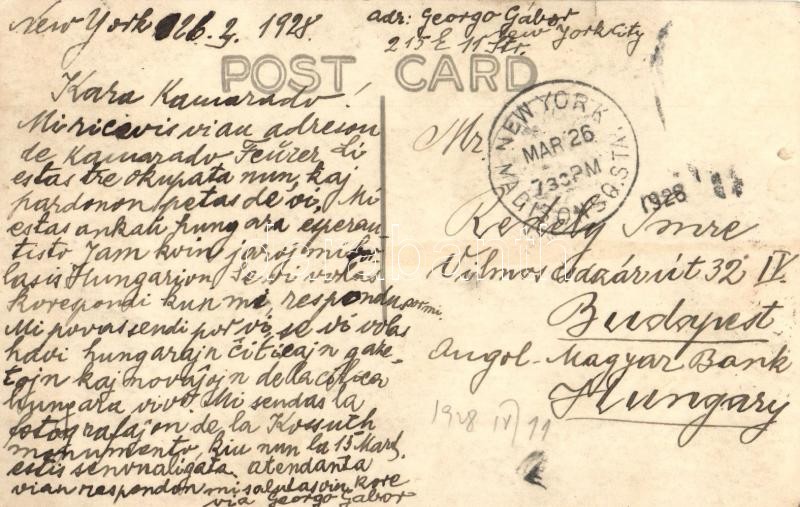 New York 26. 3. 1928.
adr: Georgo Gábor
New York City
215 E 11 Str.
POST CARD
Kara Kamarado!
Mi ricevis vian adreson
de Kamarado Feürer. Li
estas tre okupata nun, kaj
pardonon petas de vi. Mi
estas ankaŭ hungara esperan
tisto jam kvin jaroj mi for
lasis Hungarion. Se vi volas
korespondi kun mi, respondu
Mi povas sendi por vi, se vi volas
havi hungarajn gaze-
tojn kaj novaĵojn de la
hungara vivo. Mi sendas la
fotografaĵon de la Kossuth
monumento, kiu nun la 15 Mart
estis senvualigata. atendanta
vian respondon mi salutas vin kore
via Georgo Gábor
NEW YORK
MAR 26
7 30 PM
MADISON SQ. STA.
1928
Mr.
Redély Imre
Vilmos császár út 32 IV.
Budapest
Angol-Magyar Bank
Hungary
1928 IV/11
darabanth